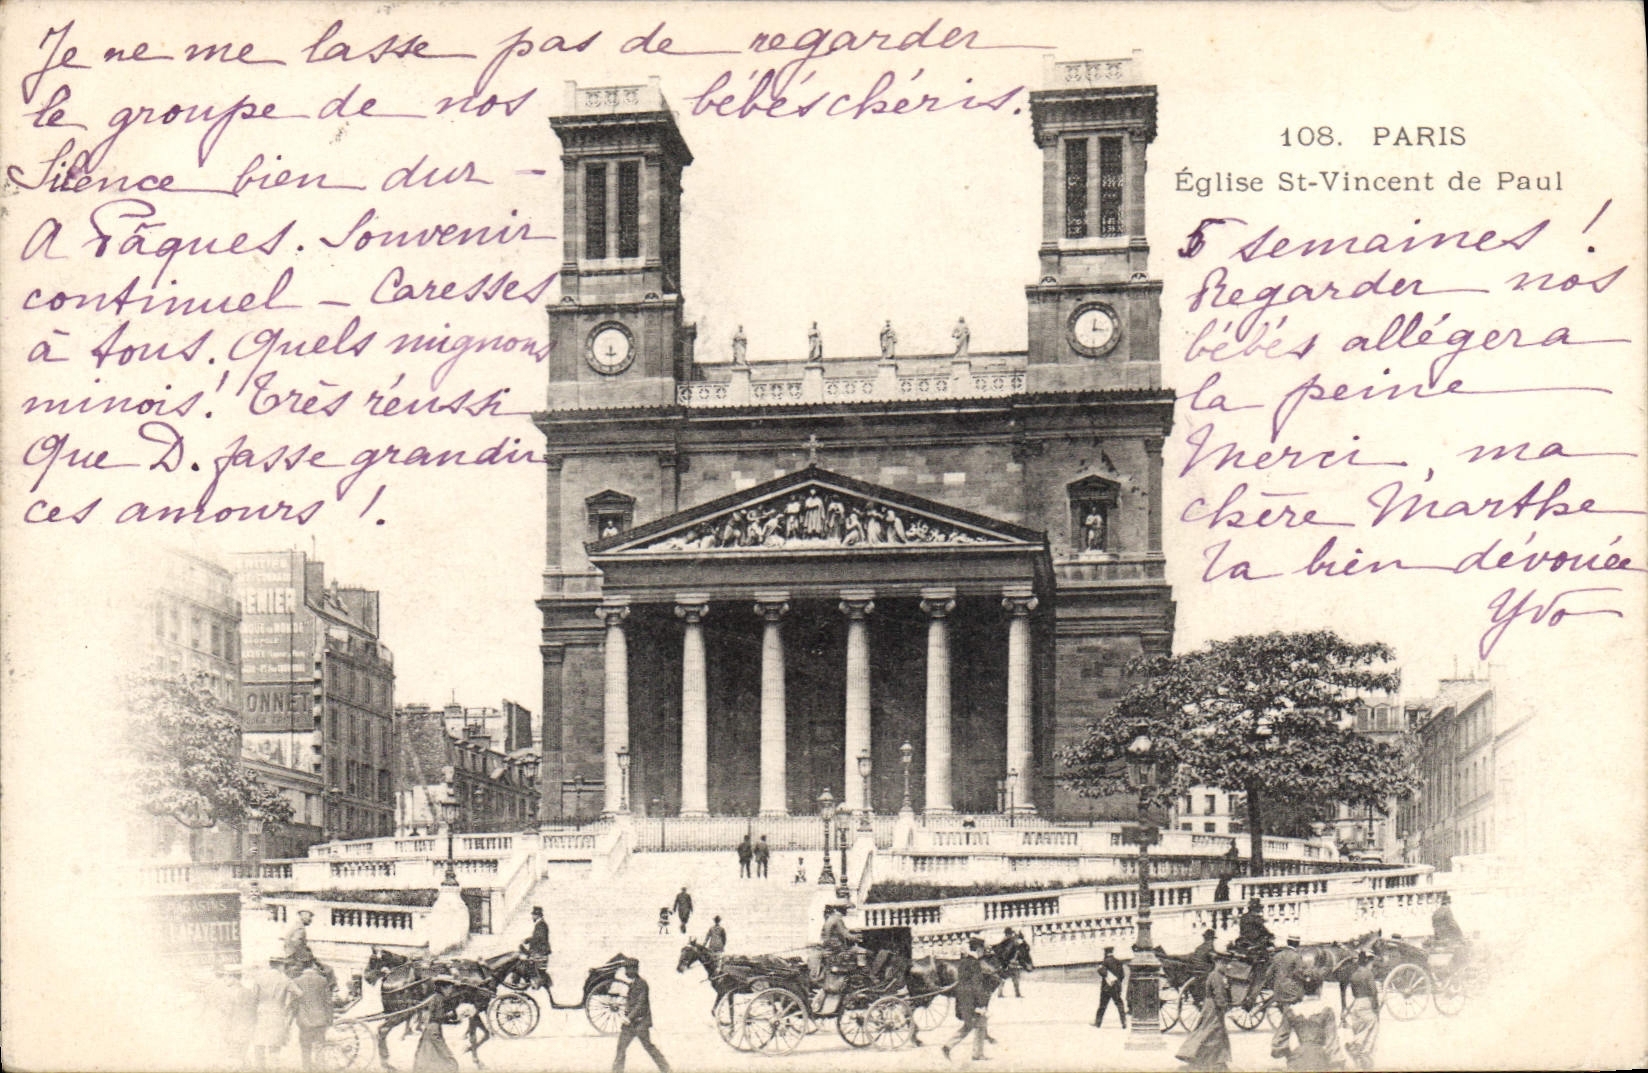 Je ne me lasse pas de regarder
le groupe de nos bébés chéris.
Silence bien dur -
A Pâques. Souvenir
continuel - Caresses
à tous. Quels mignons
minois! Très réussi
Que D. fasse grandir
ces amours !.
108. PARIS
Église St-Vincent de Paul
5 semaines !
Regarder nos
bébés allégera
la peine
Merci, ma
chère Marthe
Ta bien dévouée
Yvo
ONNET
MAGASINS
LAFAYETTE